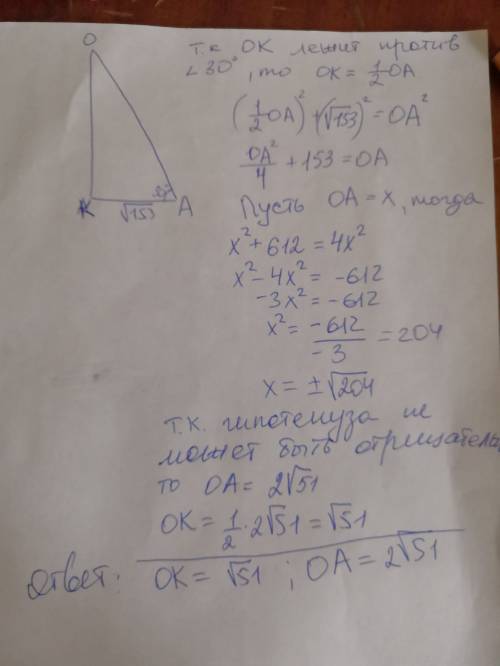 O
Т.к OK лежит против
∠30°, то OK = 1/2 OA
(1/2 OA)² + (√153)² = OA²
OA²/4 + 153 = OA
30°
K
A
√153
Пусть OA = x, тогда
x² + 612 = 4x²
x² - 4x² = -612
-3x² = -612
x² = -612/-3 = 204
x = ±√204
Т.К. гипотенуза не
может быть отрицатель
то OA = 2√51
OK = 1/2 · 2√51 = √51
Ответ: OK = √51 ; OA = 2√51